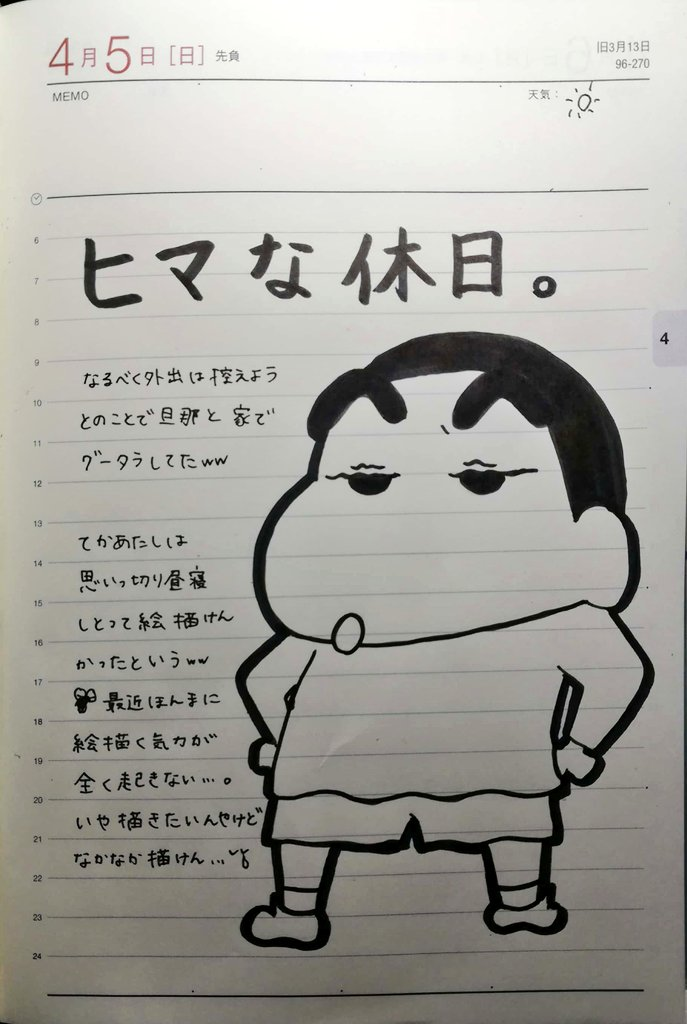 4月5日[日] 先負
旧3月13日
96-270
MEMO
天気：
ヒマな休日。
6
7
8
9
10
11
12
13
14
15
16
17
18
19
20
21
22
23
24
なるべく外出は控えよう
とのことで旦那と家で
グータラしてたww
てかあたしは
思いっ切り昼寝
しとって絵描けん
かったというww
最近ほんまに
絵描く気力が
全く起きない…。
いや描きたいんやけど
なかなか描けん…
4